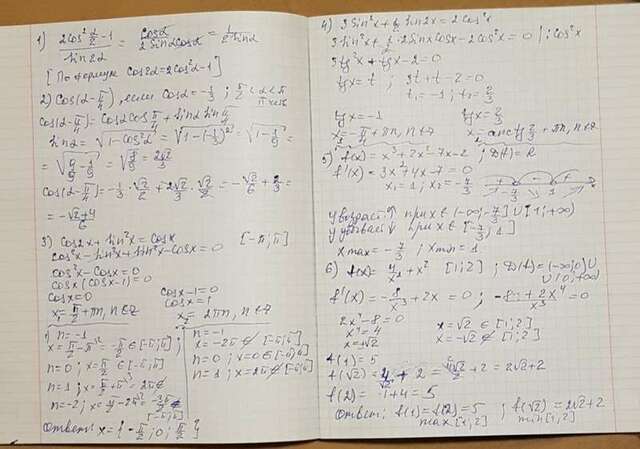 1) (2cos² α/2 - 1)/(sin2α) = cosα/(2sinαcosα) = 1/(2sinα)
[По формуле cos2α = 2cos²α - 1]
2) cos(α - π/4), если cosα = -1/3 ; π/2 < α < π
II четв
cos(α - π/4) = cosα cos π/4 + sinα sin π/4
sinα = √(1 - cos²α) = √(1 - (-1/3)²) = √(1 - 1/9) =
cos(α - π/4) = -1/3 · √2/2 + 2√2/3 · √2/2 = -√2/6 + 2/3 =
= (-√2 + 4)/6
3) cos2x + sin²x = cosx [-π; π]
cos²x - sin²x + sin²x - cosx = 0
cos²x - cosx = 0
cosx (cosx - 1) = 0
cosx = 0 cosx - 1 = 0
cosx = 1
x₁ = π/2 + πn, n ∈ Z x₂ = 2πn, n ∈ Z
n = -1
x = π/2 - π = -π/2 ∈ [-π; π] ;
n = 0 ; x = π/2 ∈ [-π; π]
n = -1
x = -2π ∉ [-π; π]
n = 0 ; x = 0 ∈ [-π; π]
n = 1 ; x = 2π ∉ [-π; π]
Ответ: x = { -π/2 ; 0 ; π/2 }
4) 3sin²x + 1/2 sin2x = 2cos²x
3sin²x + 1/2 · 2sinx cosx - 2cos²x = 0 | : cos²x
3tg²x + tgx - 2 = 0
tgx = t ; 3t + t - 2 = 0
t₁ = -1 ; t₂ = 2/3
tgx = -1 tgx = 2/3
x₁ = -π/4 + πn, n ∈ Z x₂ = arctg 2/3 + πn, n ∈ Z
5) f(x) = x³ + 2x² - 7x - 2 ; D(f) = R
f'(x) = 3x² + 4x - 7 = 0
x₁ = 1 ; x₂ = -7/3
y возраст ↑ при x ∈ (-∞; -7/3] ∪ [1; +∞)
y убывает ↓ при x ∈ [-7/3; 1]
x max = -7/3 ; x min = 1
6) f(x) = 4/x² + x² [1; 2] ; D(f) = (-∞; 0) ∪
∪ (0; +∞)
f'(x) = -8/x³ + 2x = 0 ; (-8 + 2x⁴)/x³ = 0
2x⁴ - 8 = 0
x⁴ = 4
x = ±√2
x = √2 ∈ [1; 2]
x = -√2 ∉ [1; 2]
f(1) = 5
f(2) = 1 + 4 = 5
Ответ: f(1) = f(2) = 5 ; f(√2) = 2√2 + 2
max [1; 2] min [1; 2]